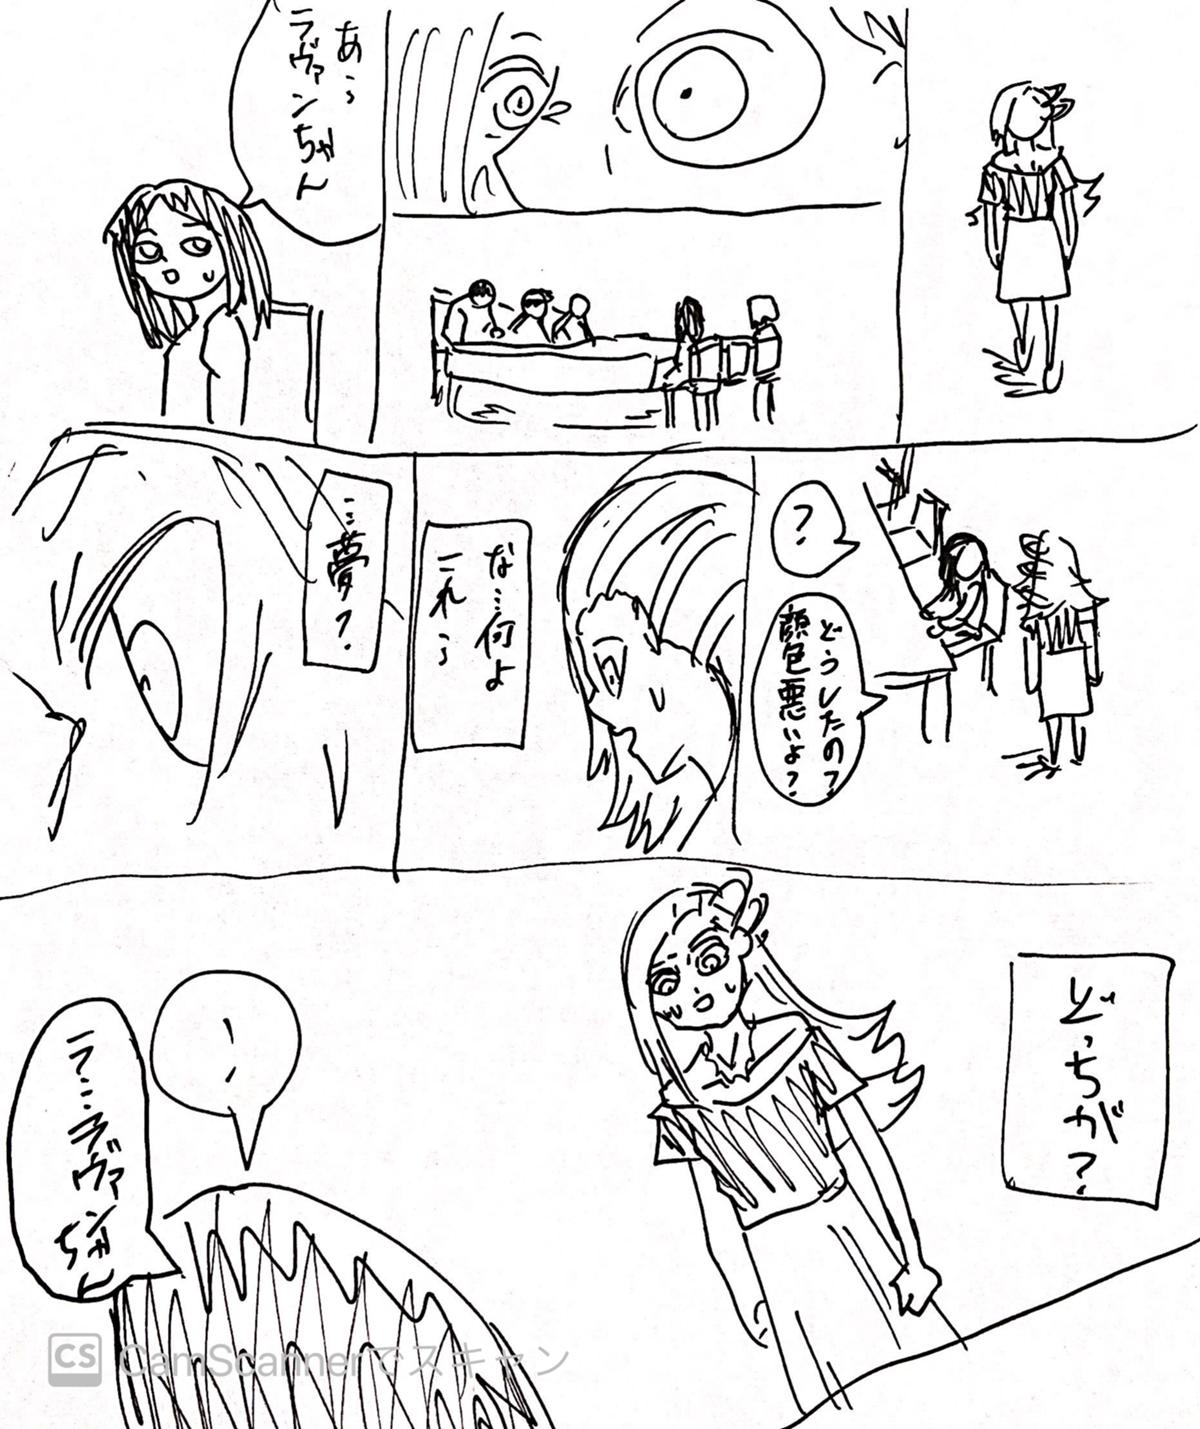 あら
ラヴァンちゃん
?
どうしたの?
顔色悪いよ?
な…何よ
これら
…夢?
どっちが?
!
ラ…ラヴァン
ちゃん
CS CamScannerでスキャン